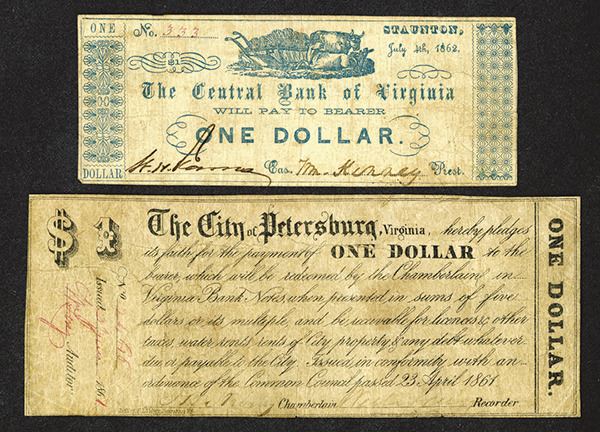 ONE
No. 333
STAUNTON,
July 4th, 1862.
$1
The Central Bank of Virginia
WILL PAY TO BEARER
ONE DOLLAR.
DOLLAR
Cas. Wm. Kinney Prest.
$1
The City of Petersburg, Virginia, hereby pledges
its faith for the payment of ONE DOLLAR to the
bearer, which will be redeemed by the Chamberlain in
Virginia Bank Notes when presented in sums of five
dollars or its multiple, and be receivable for licences & other
taxes, water rents rents of City property & any debt whatever
due or payable to the City. Issued in conformity with an
ordinance of the Common Council passed 23 April 1861
Chamberlain Recorder
No.
Issued 1861
Auditor
ONE DOLLAR.